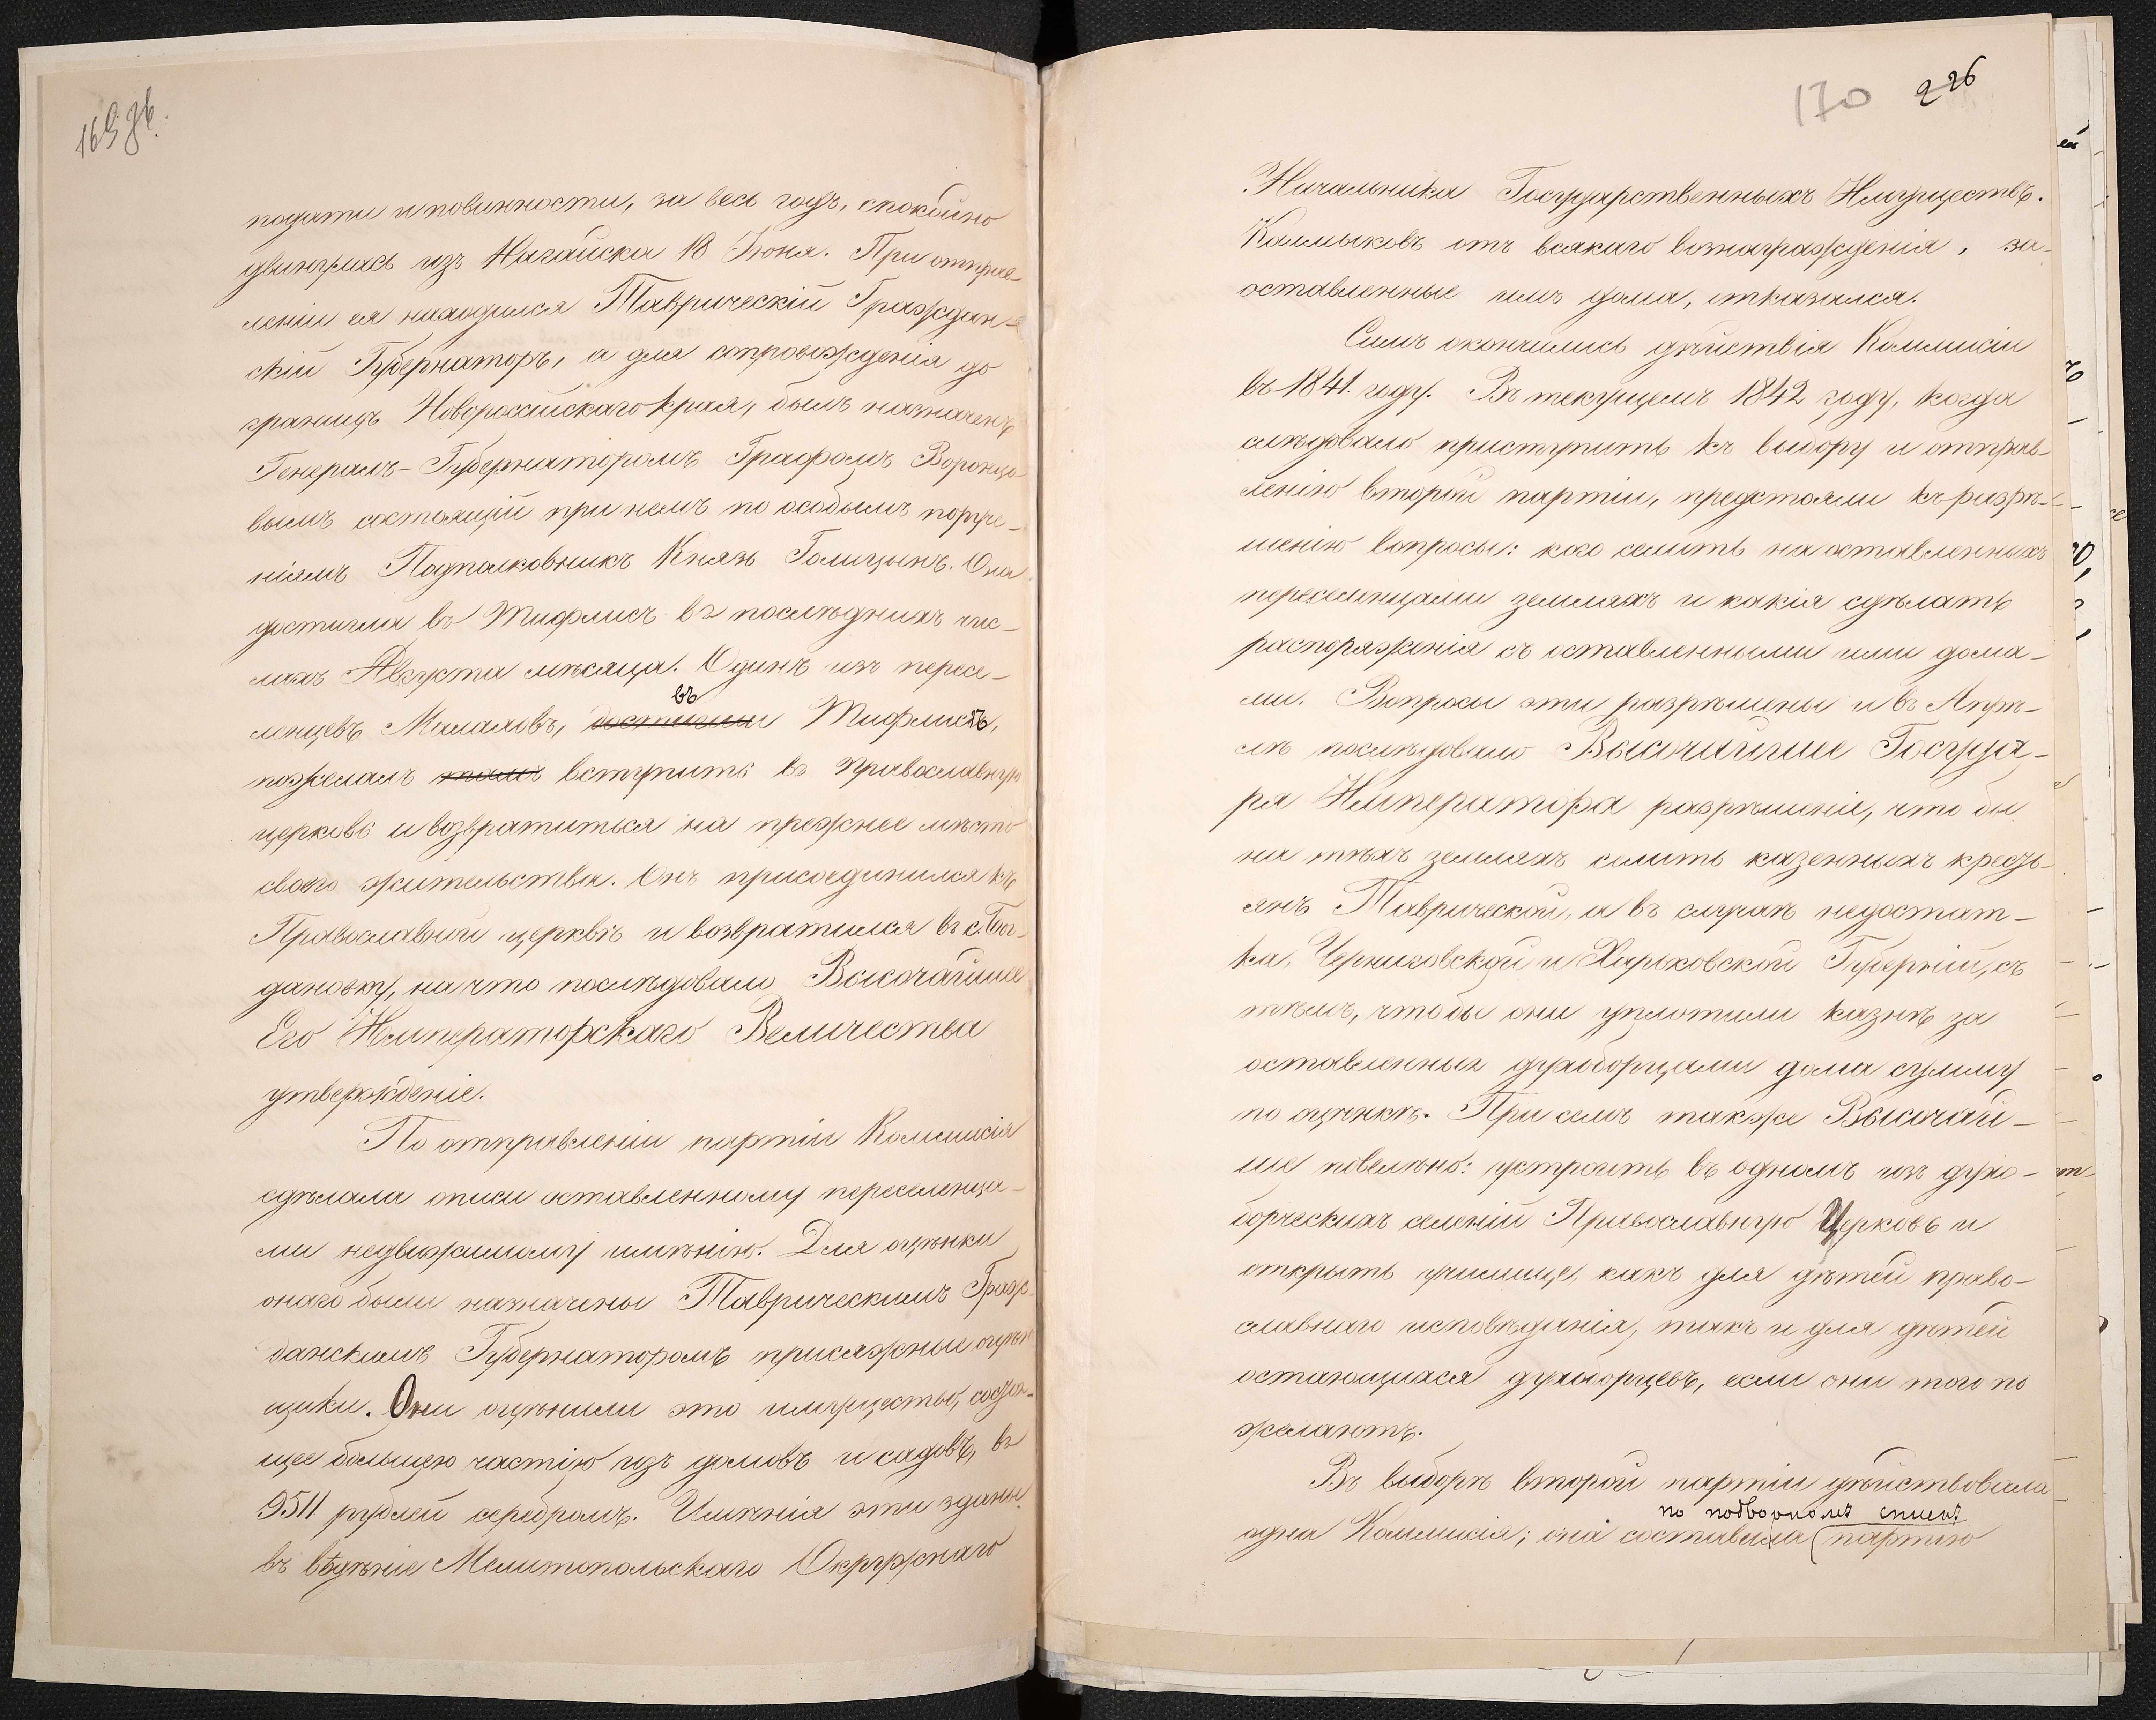 169 об.
подати и повинности, за весь годъ, спокойно
двинулась изъ Нагайска 18 Іюня. При отправ-
леніи ея находился Таврическій Граждан-
скій Губернаторъ, а для сопровожденія до
границъ Новороссійскаго края, былъ назначенъ
Генералъ-Губернаторомъ Графомъ Воронцо-
вымъ состоящій при немъ по особымъ поруче-
ніямъ Подполковникъ Князь Голицынъ. Она
достигла въ Тифлисъ въ послѣднихъ чис-
лахъ Августа мѣсяца. Одинъ изъ пересе-
въ
ленцевъ Малаховъ, достигши Тифлисѣ,
пожелалъ вступить въ православную
церковь и возвратиться на прежнее мѣсто
своего жительства. Онъ присоединился къ
Православной церквѣ и возвратился въ с. Бог-
дановку, на что послѣдовало Высочайшее
Его Императорскаго Величества
утвержденіе.
По отправленіи партіи Коммисія
сдѣлала описи оставленному переселенца-
ми недвижимому имѣнію. Для оцѣнки
онаго были назначены Таврическимъ Граж-
данскимъ Губернаторомъ присяжные оцѣн-
щики. Они оцѣнили это имущество, состоя-
щее большею частію изъ домовъ и садовъ, въ
9511 рублей серебромъ. Имѣнія эти сданы
въ вѣдѣніе Мелитопольскаго Окружнаго
170 226
Начальника Государственныхъ Имуществъ.
Калмыковъ отъ всякаго вознагражденія, за
оставленные имъ дома, отказался.
Симъ окончились дѣйствія Коммисіи
въ 1841. году. Въ текущемъ 1842 году, когда
слѣдовало приступить къ выбору и отправ-
ленію второй партіи, предстояли къ разрѣ-
шенію вопросы: кого селить на оставленныхъ
переселенцами земляхъ и какія сдѣлать
распоряженія съ оставленными ими дома-
ми. Вопросы эти разрѣшены и въ Апрѣ-
лѣ послѣдовало Высочайшее Госуда-
ря Императора разрѣшеніе, что бы
на тѣхъ земляхъ селить казенныхъ кресть-
янъ Таврической, а въ случаѣ недостат-
ка, Черниговской и Харьковской Губерній, съ
тѣмъ, чтобы они уплотили казнѣ за
оставленныя духоборцами дома сумму
по оцѣнкѣ. При семъ также Высочай-
ше повелѣно: устроить въ одномъ изъ духо-
борческихъ селеній Православную Церковь и
открыть училище, какъ для дѣтей право-
славнаго исповѣданія, такъ и для дѣтей
остающихся духоборцевъ, если они того по
желаютъ.
Въ выборѣ второй партіи дѣйствовала
по подворномъ списк
одна Коммисія; она составила партію